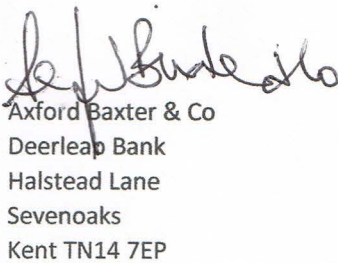 Axford Baxter & Co
Deerleap Bank
Halstead Lane
Sevenoaks
Kent TN14 7EP